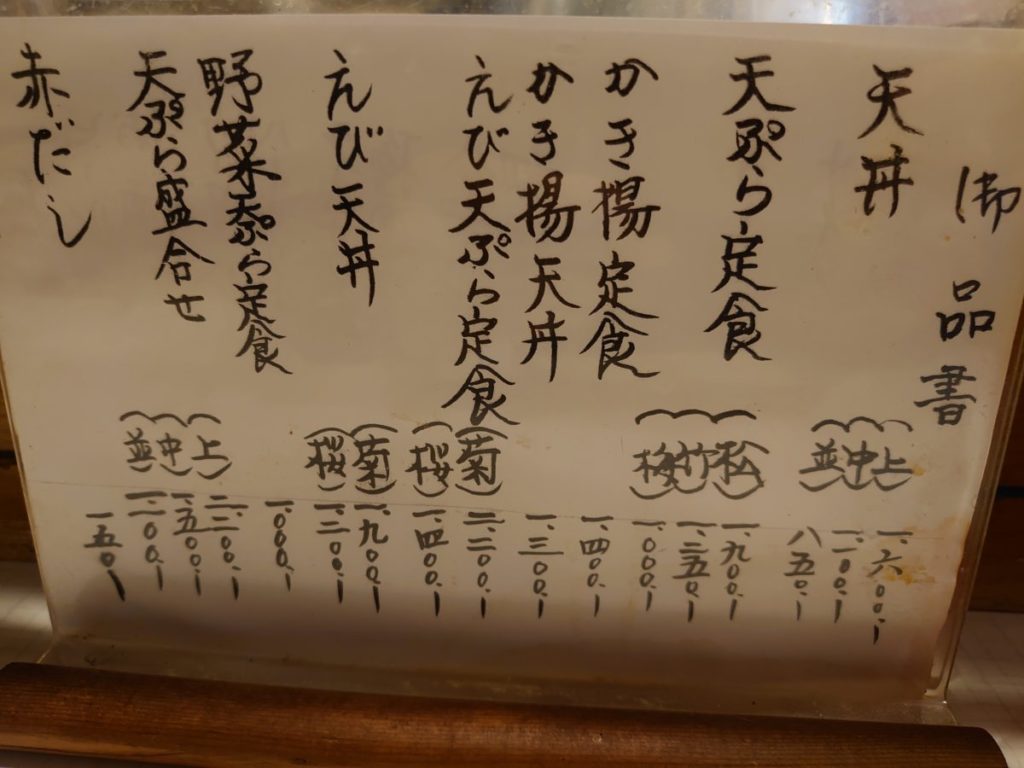 御品書
天丼
(上) 一、六〇〇、ー
(中) 一、二〇〇、ー
(並) 八五〇、ー
天ぷら定食
(松) 一、九〇〇、ー
(竹) 一、三五〇、ー
(梅) 一、〇〇〇、ー
かき揚定食
一、四〇〇、ー
かき揚天丼
一、三〇〇、ー
えび天ぷら定食
(菊) 二、二〇〇、ー
(桜) 一、四〇〇、ー
えび天丼
(菊) 一、九〇〇、ー
(桜) 一、二〇〇、ー
野菜天ぷら定食
一、〇〇〇、ー
天ぷら盛合せ
(上) 二、二〇〇、ー
(中) 一、五〇〇、ー
(並) 一、二〇〇、ー
赤だし
一五〇、ー